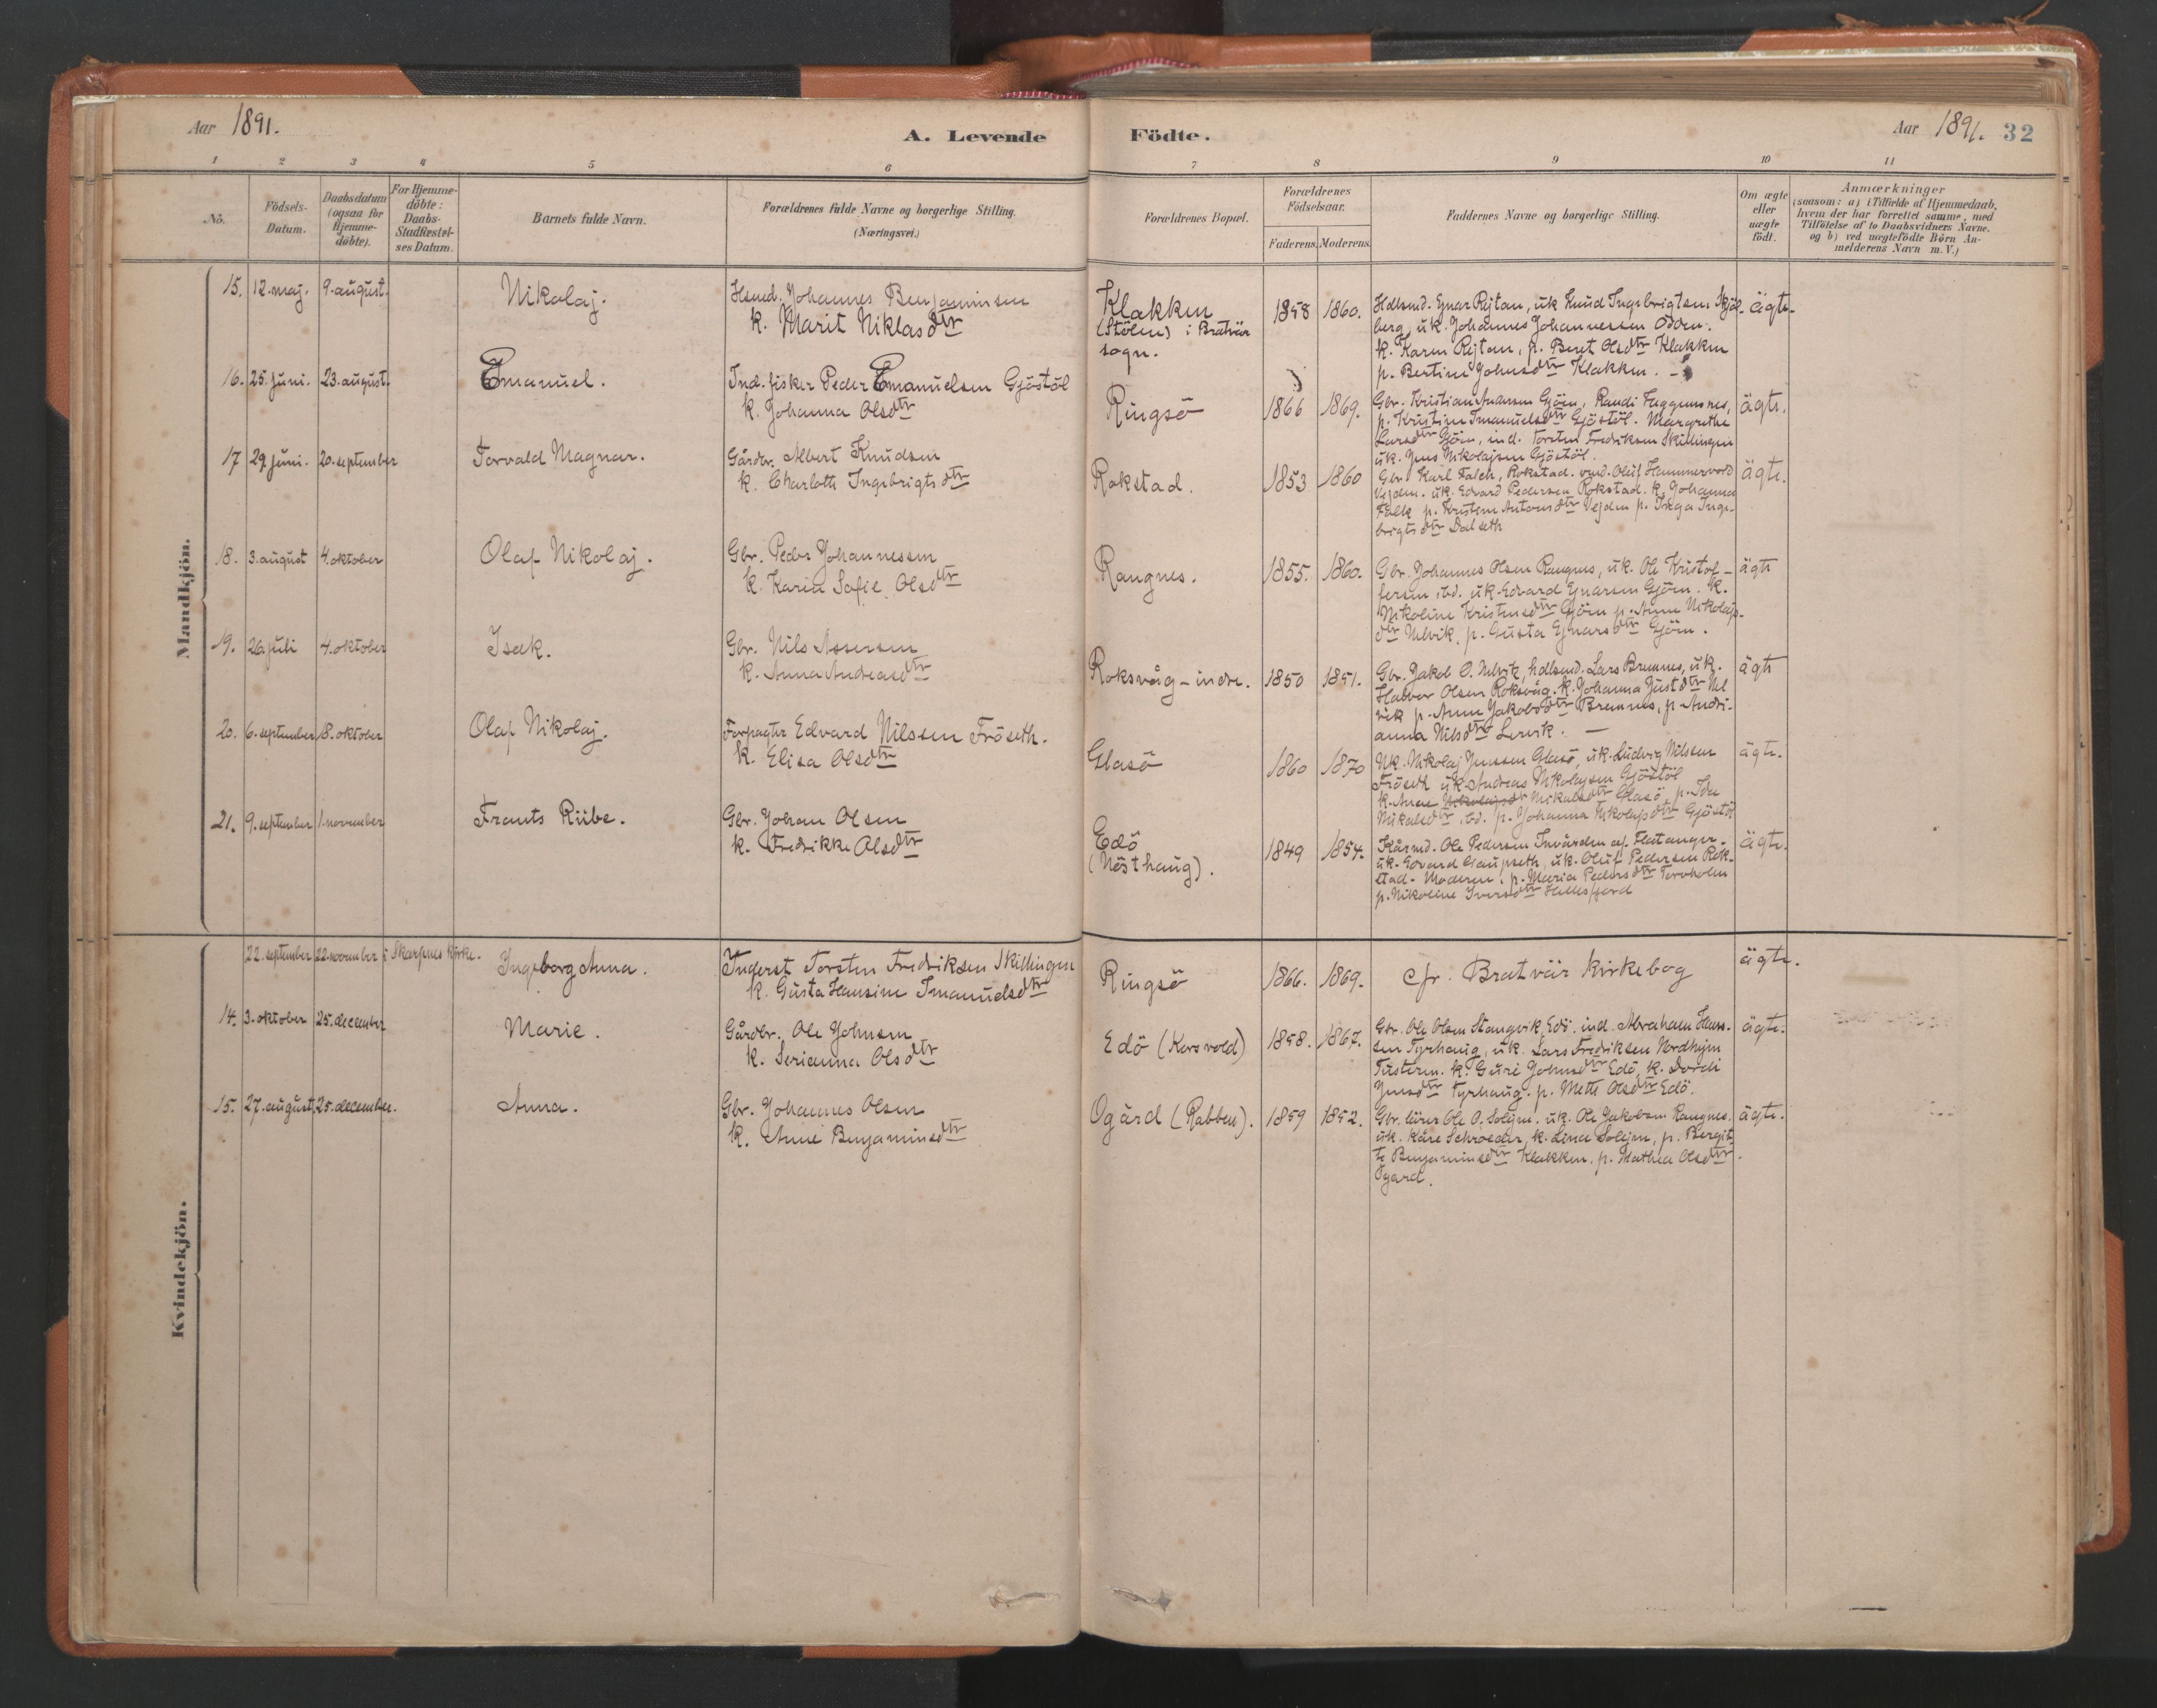 Aar 1891.
A. Levende
Födte.
Aar 1891. 32
1 2 3 4 5 6 7 8 9 10 11
No.
Födsels-
Datum.
Daabsdatum
(ogsaa for
Hjemme-
döbte).
For Hjemme-
döbte:
Daabs-
Stadfæstel-
ses Datum.
Barnets fulde Navn.
Forældrenes fulde Navne og borgerlige Stilling.
(Næringsvei.)
Forældrenes Bopæl.
Forældrenes
Födselsaar.
Faderens. Moderens.
Faddernes Navne og borgerlige Stilling.
Om ægte
eller
uægte
födt.
Anmærkninger
(saasom: a) i Tilfælde af Hjemmedaab,
hvem der har forrettet samme, med
Tilföielse af to Daabsvidners Navne.
og b) ved uægtefödte Börn An-
melderens Navn m. V.)
Mandkjön.
15. 12. maj. 9. august. Nikolaj.
Husmd. Johannes Benjaminsen
k. Marit Niklasdtr
Klakken
(Stölen) i Bratvär
sogn.
1858 1860.
Hdlsmd. Ejnar Rejtan, uk Knud Ingebrigtsen Skjöl-
berg, uk. Johannes Johannessen Odden.
k. Karen Rejtan, p. Beret Olsdtr Klakken
p. Bertine Johnsdtr Klakken. -
ägte.
16. 25. juni. 23. august. Emanuel.
Ind. fisker Peder Emanuelsen Gjöstöl
k. Johanna Olsdtr
Ringsö
1866 1869.
Gbr. Kristian Gjöen, Randi
p. Kristine Imanuelsdtr Gjöstöl. Margrethe
Larsdtr Gjöen, ind. Torsten Fredriksen Skillingen
uk. Jens Nikolajsen Gjöstöl.
ägte.
17 29. juni. 20. september Torvald Magnar.
Gårdbr. Albert Knudsen
k. Charlotte Ingebrigtsdtr
Rokstad.
1853 1860
Gbr Karl Falch, Rokstad. Oluf Hammervold
Vejden. uk. Edvard Pedersen Rokstad. k. Johanna
Falk p. Kristine Antonsdtr Vejden p. Inga Inge-
brigtsdtr Dalseth
ägte.
18. 3. august 4. oktober Olaf Nikolaj.
Gbr. Peder Johannessen
k. Karia Sofie Olsdtr
Rangnes.
1855. 1860.
Gbr. Johannes Olsen Rangnes, uk. Ole Kristof-
fersen, ibd. uk. Edvard Ejnarsen Gjöen. k.
Nikoline Kristensdtr Gjöen p. Anne Nikolajs-
dtr Nelvik, p. Gusta Ejnarsdtr Gjöen.
ägte
19. 26. juli 4. oktober Isak.
Gbr. Nils Assersen
k. Anna Andreasdtr
Roksvåg - indre.
1850 1851.
Gbr. Jakob O. Nelvik, hdlsmd. Lars Bremnes, uk.
Halvor Olsen Roksvåg. k. Johanna Justdtr Nel
vik p. Anne Jakobsdtr Bremnes, p. Andri-
anna Nilsdtr Lervik. -
ägte
20. 6. september 18. oktober Olaf Nikolaj.
Forpagter Edvard Nilssen Fröseth.
k. Elisa Olsdtr
Glasö
1860 1870
Uk. Nikolaj Jenssen Glasö, uk. Ludvig Nilssen
Fröseth uk. Andreas Nikolajsen Gjöstöl
k. Anne Nikolajsdtr Mikalsdtr Glasö, p. Ida
Mikalsdtr, ibd. p. Johanna Nikolajsdtr Gjöstöl
ägte.
21. 9. september 1. november Frants Riibe.
Gbr. Johan Olsen
k. Fredrikke Olsdtr
Edö
(Nösthaug).
1849 1854.
Kårmd. Ole Pedersen Invärden af Flatanger.
uk. Edvard Gaupseth, uk. Oluf Pedersen Rok-
stad. Moderen, p. Maria Pedersdtr Tornholm
p. Nikoline Iversdtr Hellesfjord
ägte.
Kvindekjön.
22. september 22. november i Skarpnes kirke. Ingeborg Anna.
Inderst Torsten Fredriksen Skillingen
k. Gusta Hansine Imanuelsdtr
Ringsö
1866. 1869.
cfr. Bratvär kirkebog
ägte.
14. 3. oktober 25. december Marie.
Gårdbr. Ole Johnsen
k. Serianna Olsdtr
Edö (Korsvold)
1858. 1867.
Gbr. Ole Olsen Stangvik, Edö. ind. Abraham Hans-
sen Tyrhaug, uk. Lars Fredriksen Nordhejm
Tusteren. k. Guri Johnsdtr Edö, k. Dordi
Jensdtr Tyrhaug. p. Mette Olsdtr Edö.
ägte.
15. 27. august 25. december. Anna.
Gbr. Johannes Olsen
k. Anne Benjaminsdtr
Ogård (Rabben).
1859 1852.
Gbr. lärer Ole O. Solejm. uk. Ole Jakobsen Rangnes.
uk. Kåre Schrøder, k. Lina Solejm, p. Bergit-
te Benjaminsdtr Klakken. p. Mathea Olsdtr
Ogard.
ägte.